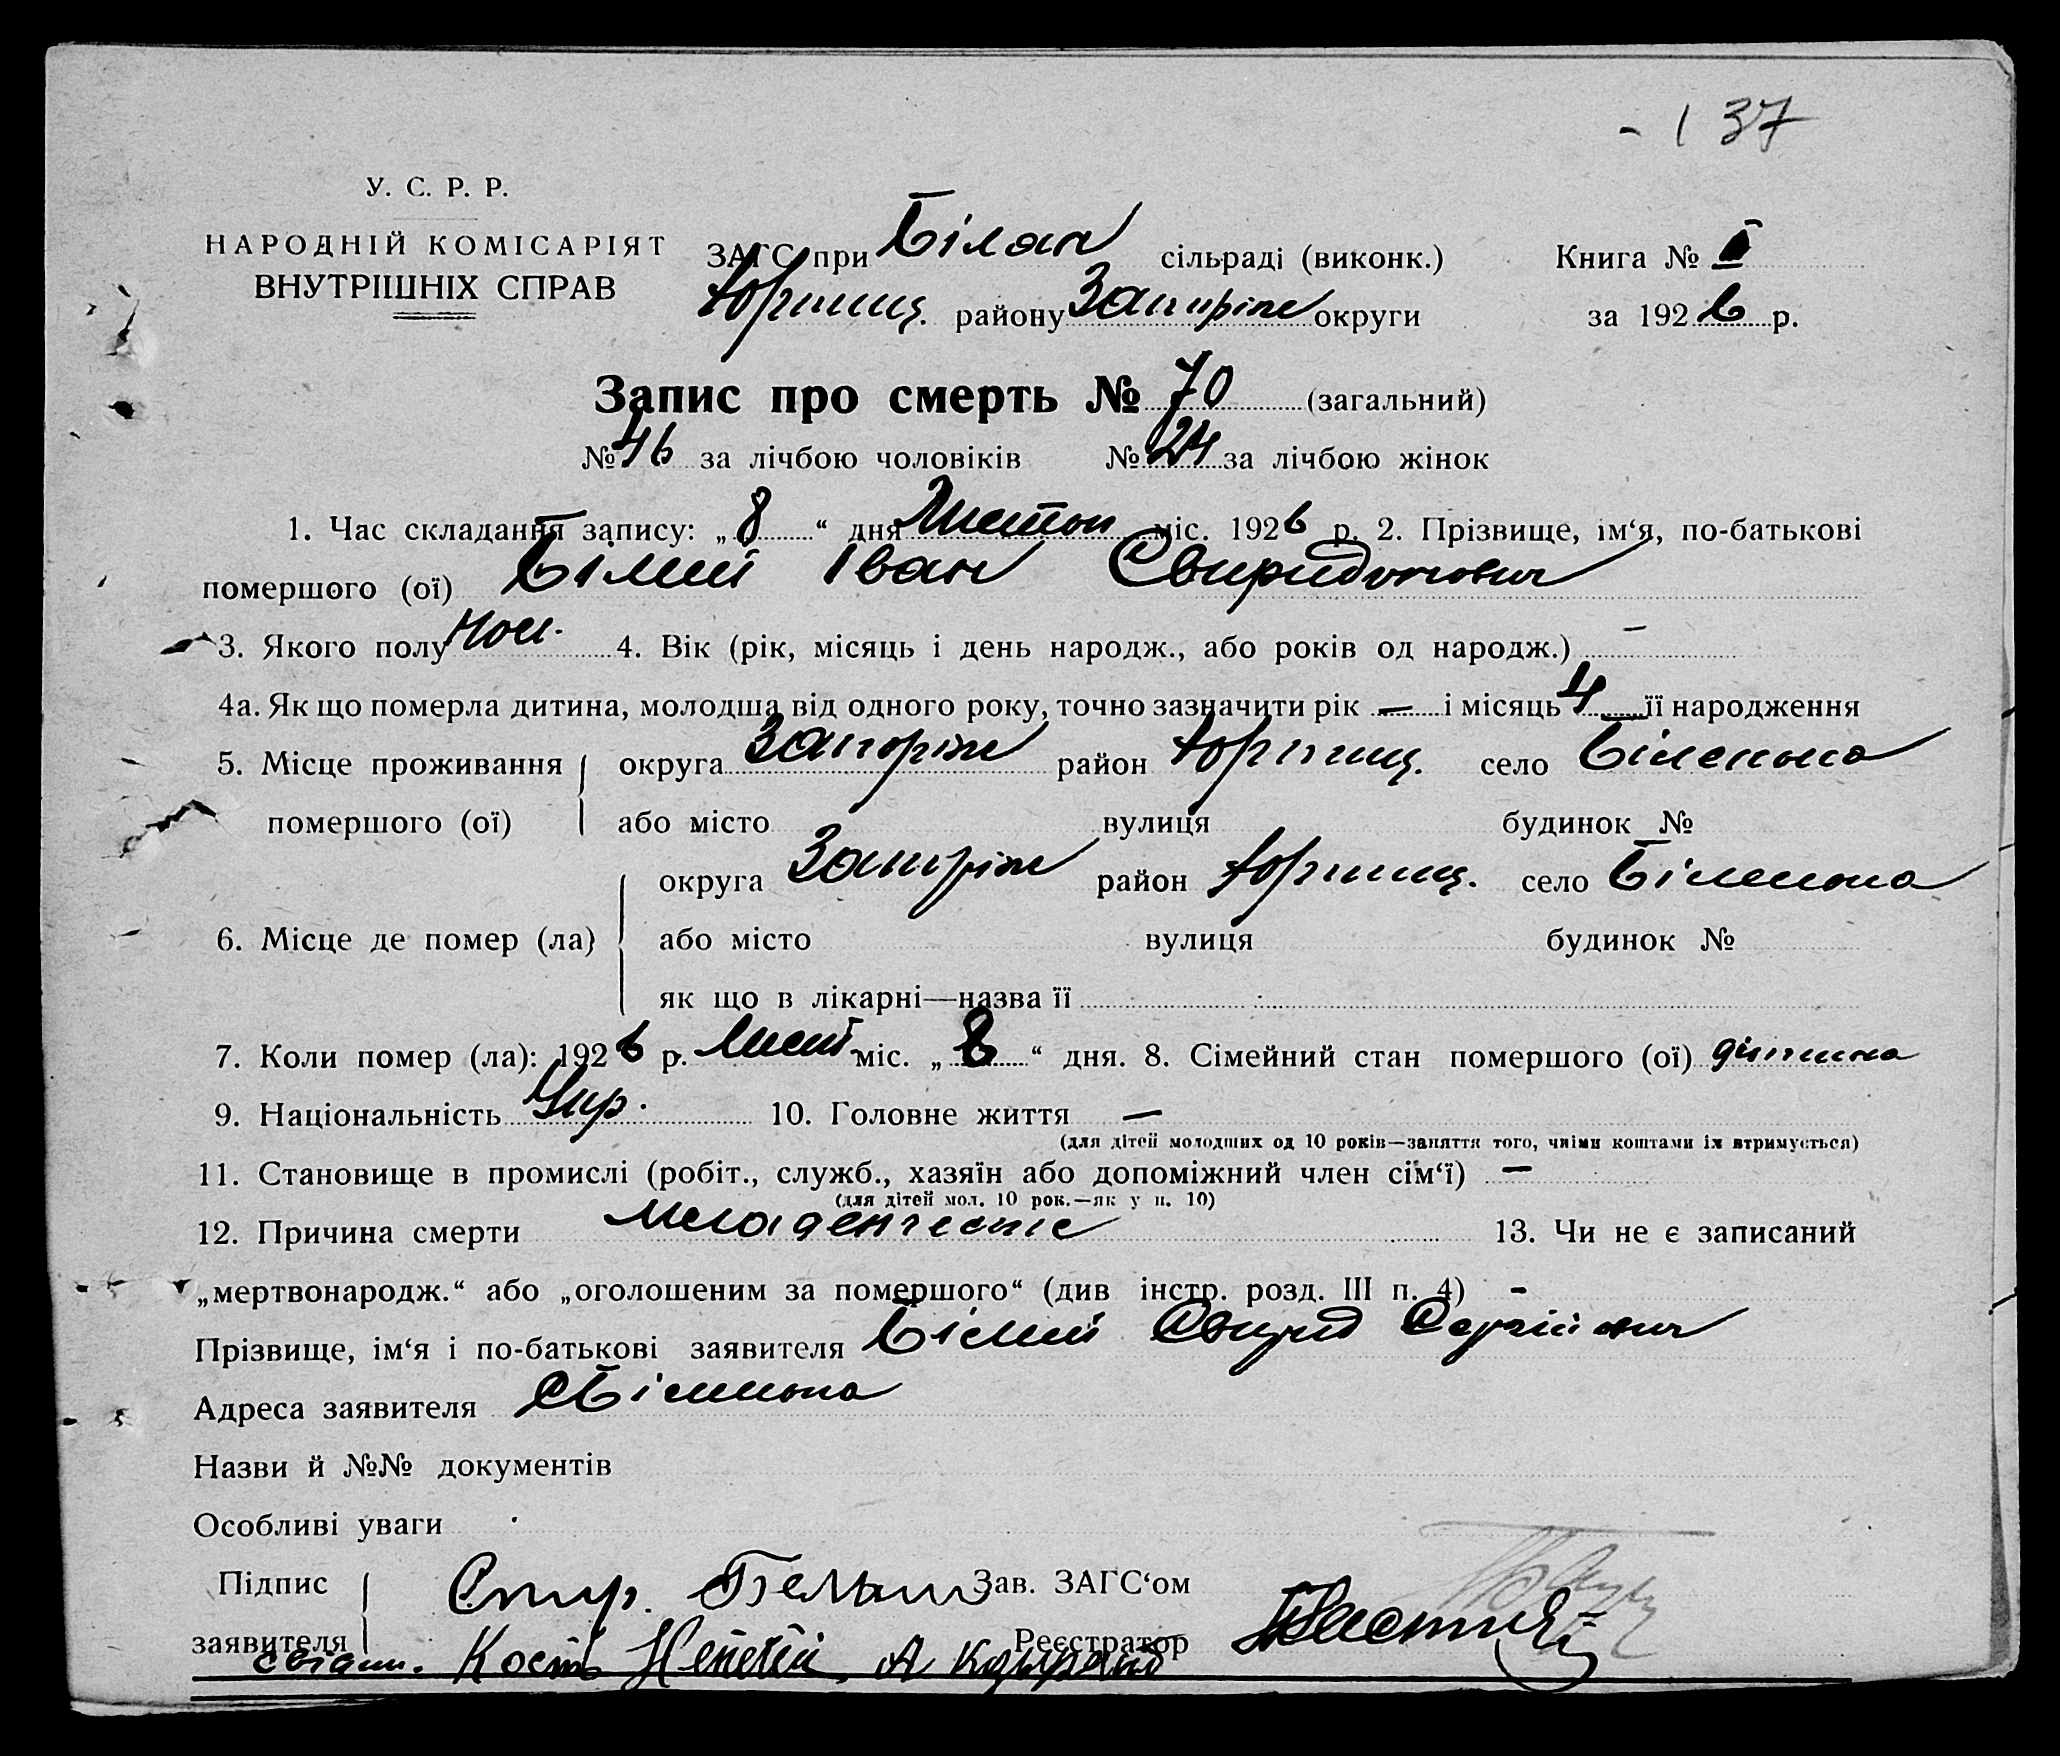 - 137
У. С. Р. Р.
НАРОДНІЙ КОМІСАРІЯТ
ВНУТРІШНІХ СПРАВ
ЗАГС при Білен сільраді (виконк.) Книга № I
Хортиц. району Запоріж округи за 1926 р.
Запис про смерть № 70 (загальний)
№ 46 за лічбою чоловіків № 24 за лічбою жінок
1. Час складання запису: „ 8 “ дня Листоп міс. 1926 р. 2. Прізвище, ім‘я, по-батькові
помершого (ої) Білий Іван Свиридонович
3. Якого полу Чол. 4. Вік (рік, місяць і день народж., або років од народж.) —
4а. Як що померла дитина, молодша від одного року, точно зазначити рік — і місяць 4 її народження
5. Місце проживання округа Запоріж район Хортиц. село Біленька
помершого (ої) або місто вулиця будинок №
округа Запоріж район Хортиц. село Біленька
6. Місце де помер (ла) або місто вулиця будинок №
як що в лікарні—назва її
7. Коли помер (ла): 1926 р. Лист міс. „ 8 “ дня. 8. Сімейний стан помершого (ої) дитина
9. Національність Укр. 10. Головне життя —
(для дітей молодших од 10 років—заняття того, чиїми коштами їх втримується)
11. Становище в промислі (робіт., служб., хазяїн або допоміжний член сім‘ї) —
(для дітей мол. 10 рок.—як у п. 10)
12. Причина смерти 13. Чи не є записаний
„мертвонародж.“ або „оголошеним за помершого“ (див інстр. розд. III п. 4) -
Прізвище, ім‘я і по-батькові заявителя Білий Свирид Сергійович
Адреса заявителя с Біленька
Назви й №№ документів
Особливі уваги
Підпис Зав. ЗАГС‘ом
заявителя Реєстратор
свідки. Кость